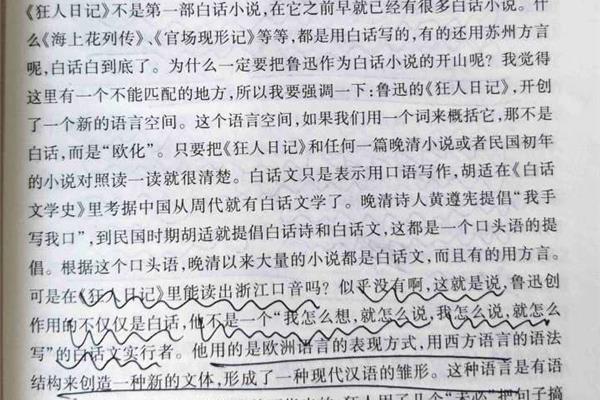 《狂人日记》不是第一部白话小说，在它之前早就已经有很多白话小说。什
么《海上花列传》、《官场现形记》等等，都是用白话写的，有的还用苏州方言
呢，白话白到底了。为什么一定要把鲁迅作为白话小说的开山呢？我觉得
这里有一个不能匹配的地方，所以我要强调一下：鲁迅的《狂人日记》，开创
了一个新的语言空间。这个语言空间，如果我们用一个词来概括它，那不是
白话，而是“欧化”。只要把《狂人日记》和任何一篇晚清小说或者民国初年
的小说对照读一读就很清楚。白话文只是表示用口语写作，胡适在《白话
文学史》里考据中国从周代就有白话文学了。晚清诗人黄遵宪提倡“我手
写我口”，到民国时期胡适就提倡白话诗和白话文，这都是一个口头语的提
倡。根据这个口头语，晚清以来大量的小说都是白话文，而且有的用方言。
可是在《狂人日记》里能读出浙江口音吗？似乎没有啊，这就是说，鲁迅创
作用的不仅仅是白话，他不是一个“我怎么想，就怎么说，我怎么说，就怎么
写”的白话文实行者。他用的是欧洲语言的表现方式，用西方语言的语法
结构来创造一种新的文体，形成了一种现代汉语的雏形。这种语言是有语
狂人用了几个“未必”把句子搞